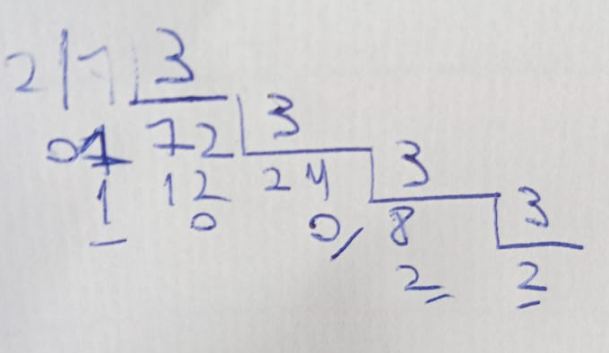 217 3
01 72 3
1 12 24 3
0 0 8 3
2 2